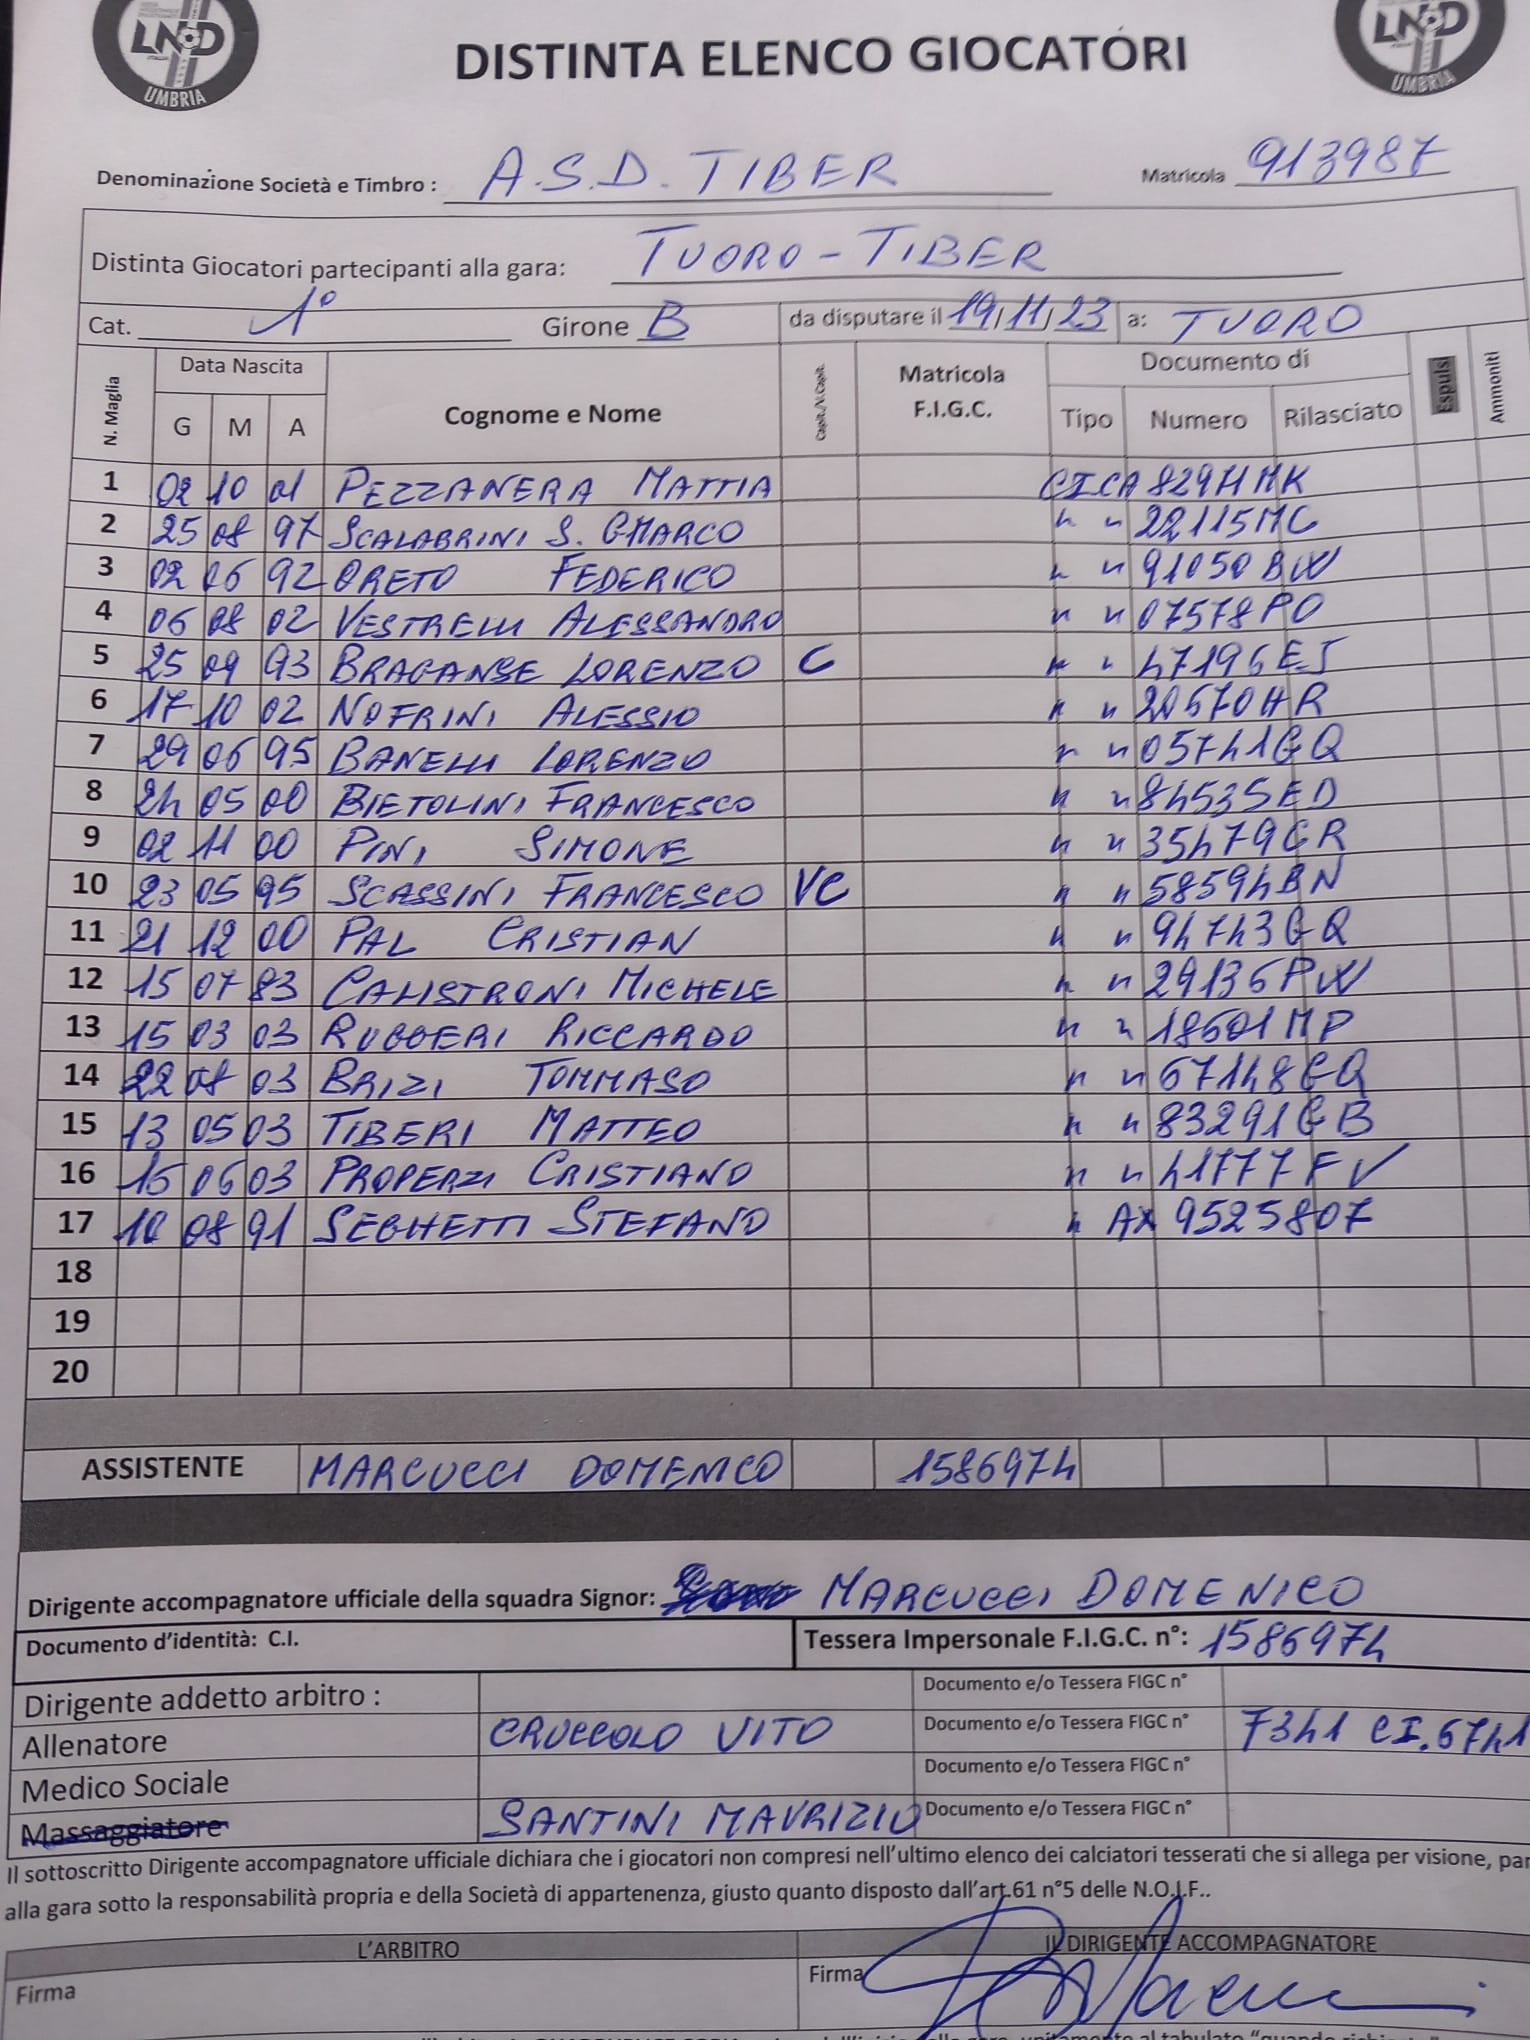 LND
UMBRIA
LND
UMBRIA
DISTINTA ELENCO GIOCATORI
Denominazione Società e Timbro : A.S.D. TIBER Matricola 913987
Distinta Giocatori partecipanti alla gara: TUORO - TIBER
Cat. 1° Girone B da disputare il 19/11/23 a: TUORO
N. Maglia Data Nascita Cognome e Nome Capit./V.Capit. Matricola F.I.G.C. Documento di Espulsi Ammoniti
G M A Tipo Numero Rilasciato
1 02 10 01 PEZZANERA MATTIA C.I. CA 82944MK
2 25 08 97 SCALABRINI S. GMARCO " " 22115MC
3 02 06 92 ORETO FEDERICO " " 91050BW
4 06 08 02 VESTRELLI ALESSANDRO " " 07578PO
5 25 09 93 BRAGANSE LORENZO C " " 47196EJ
6 17 10 02 NOFRINI ALESSIO " " 20670HR
7 29 06 95 BANELLI LORENZO " " 05741GQ
8 24 05 00 BIETOLINI FRANCESCO " " 84535ED
9 02 11 00 PINI SIMONE " " 35479GR
10 23 05 95 SCASSINI FRANCESCO VC " " 58594BN
11 21 12 00 PAL CRISTIAN " " 94743GQ
12 15 07 83 CALISTRONI MICHELE " " 29136PW
13 15 03 03 RUGGERI RICCARDO " " 18601MP
14 22 08 03 BRIZI TOMMASO " " 67148GQ
15 13 05 03 TIBERI MATTEO " " 83291GB
16 15 06 03 PROPERZI CRISTIANO " " 41777FV
17 08 91 SEGHETTI STEFANO " AX 9525807
18
19
20
ASSISTENTE MARCUCCI DOMENICO 1586974
Dirigente accompagnatore ufficiale della squadra Signor: MARCUCCI DOMENICO
Documento d'identità: C.I. Tessera Impersonale F.I.G.C. n°: 1586974
Dirigente addetto arbitro : Documento e/o Tessera FIGC n°
Allenatore CRUCCOLO VITO Documento e/o Tessera FIGC n° 7341 CI.6741
Medico Sociale Documento e/o Tessera FIGC n°
Massaggiatore SANTINI MAURIZIO Documento e/o Tessera FIGC n°
Il sottoscritto Dirigente accompagnatore ufficiale dichiara che i giocatori non compresi nell'ultimo elenco dei calciatori tesserati che si allega per visione, par
alla gara sotto la responsabilità propria e della Società di appartenenza, giusto quanto disposto dall'art.61 n°5 delle N.O.I.F..
L'ARBITRO IL DIRIGENTE ACCOMPAGNATORE
Firma Firma